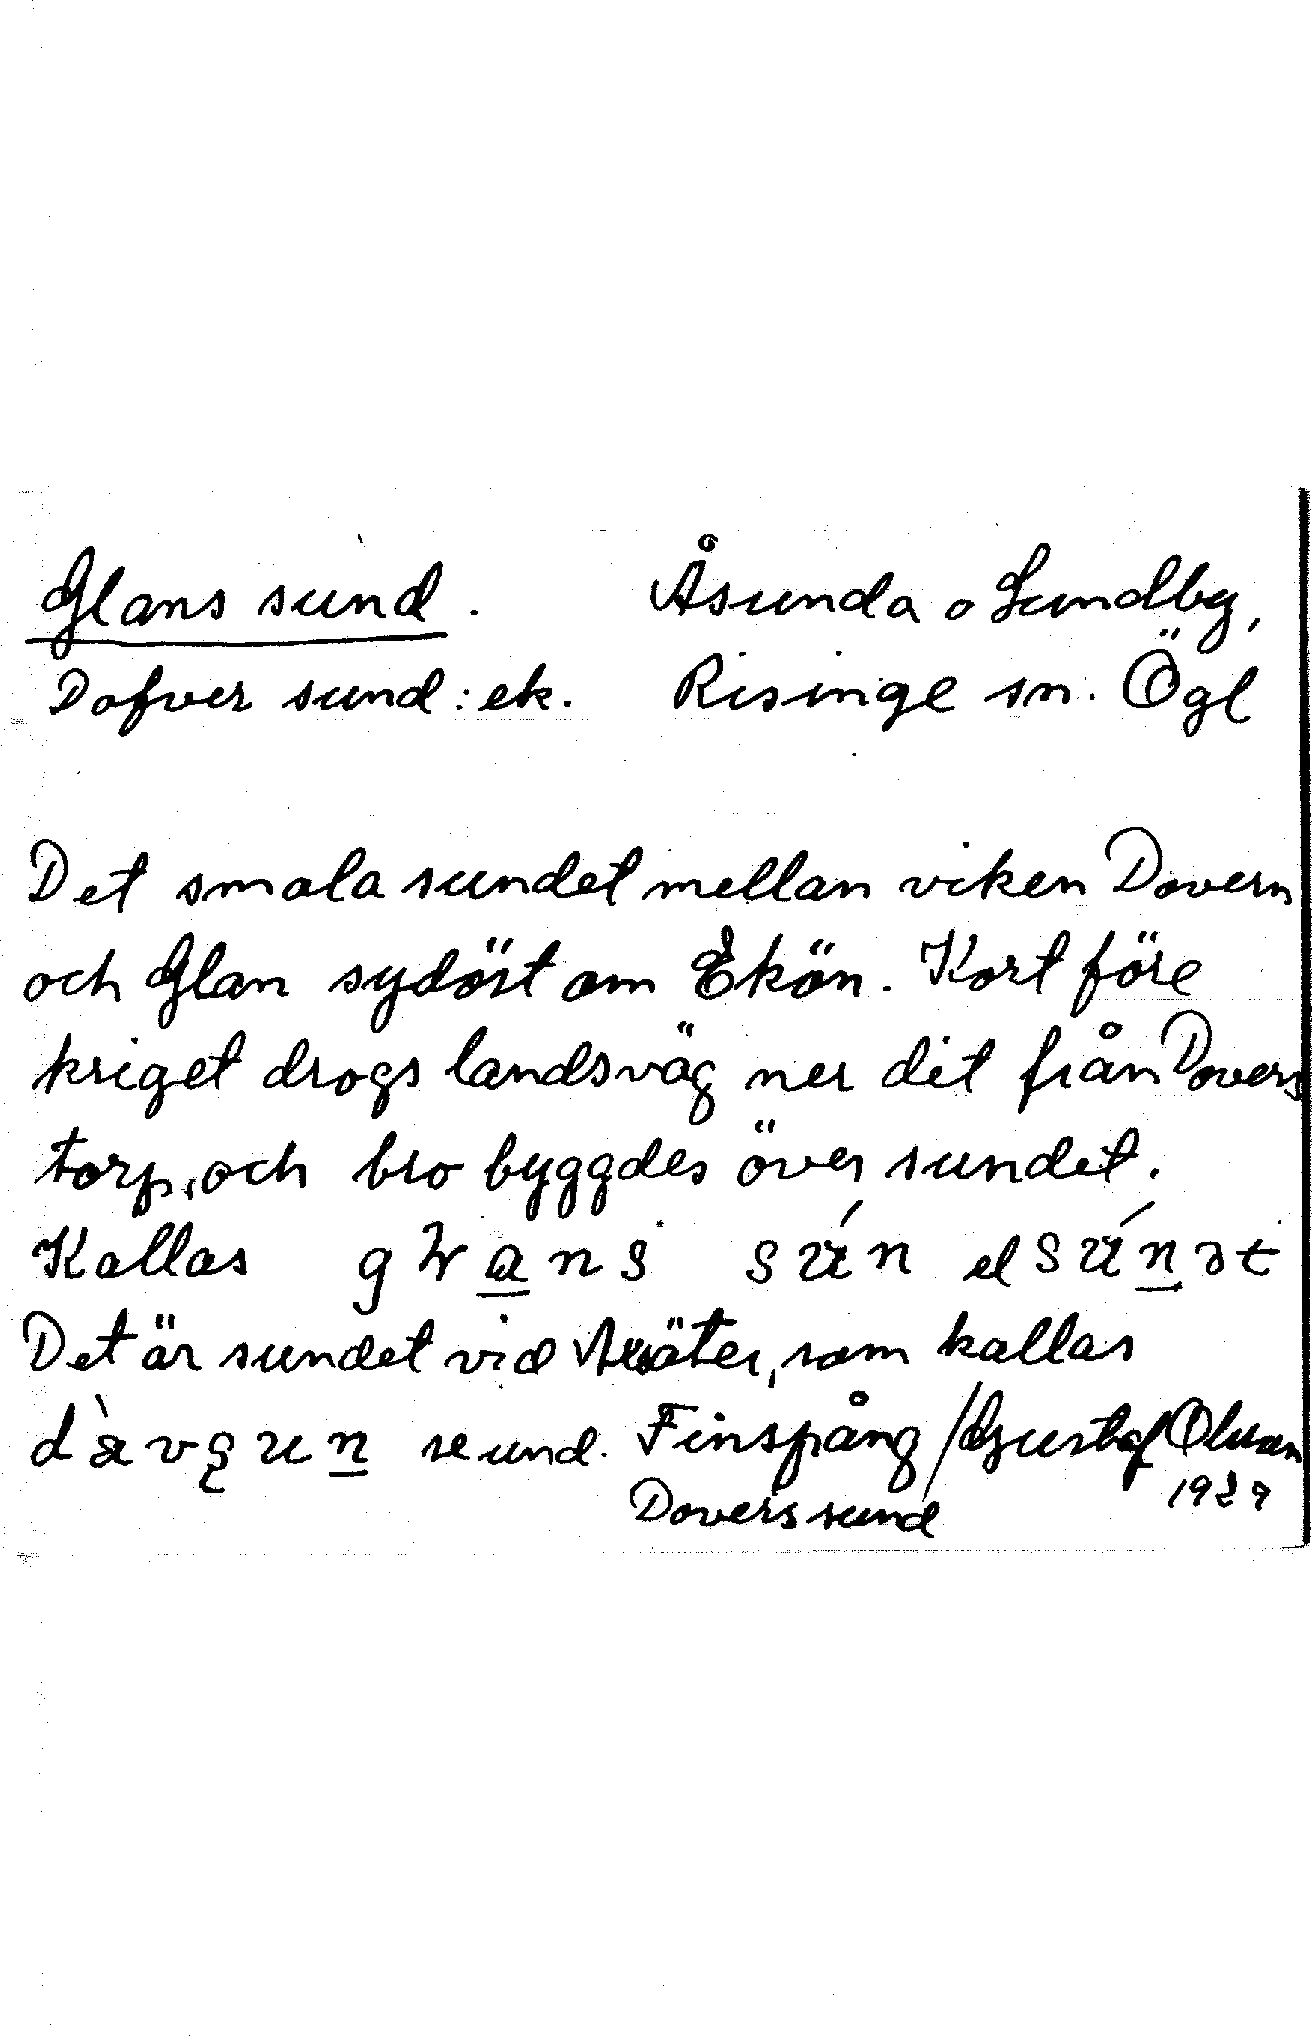 Glans sund. Åsunda o Sundby,
Dofver sund: ek. Risinge sn. Ögl
Det smala sundet mellan viken Dovern
och Glan sydöst om Ekön. Kort före
kriget drogs landsväg ner dit från Dovers
torp, och bro byggdes över sundet.
Kallas sún el
Det är sundet vid som kallas
se und. Finspång / Gustaf Olsson
Doverssund 1929